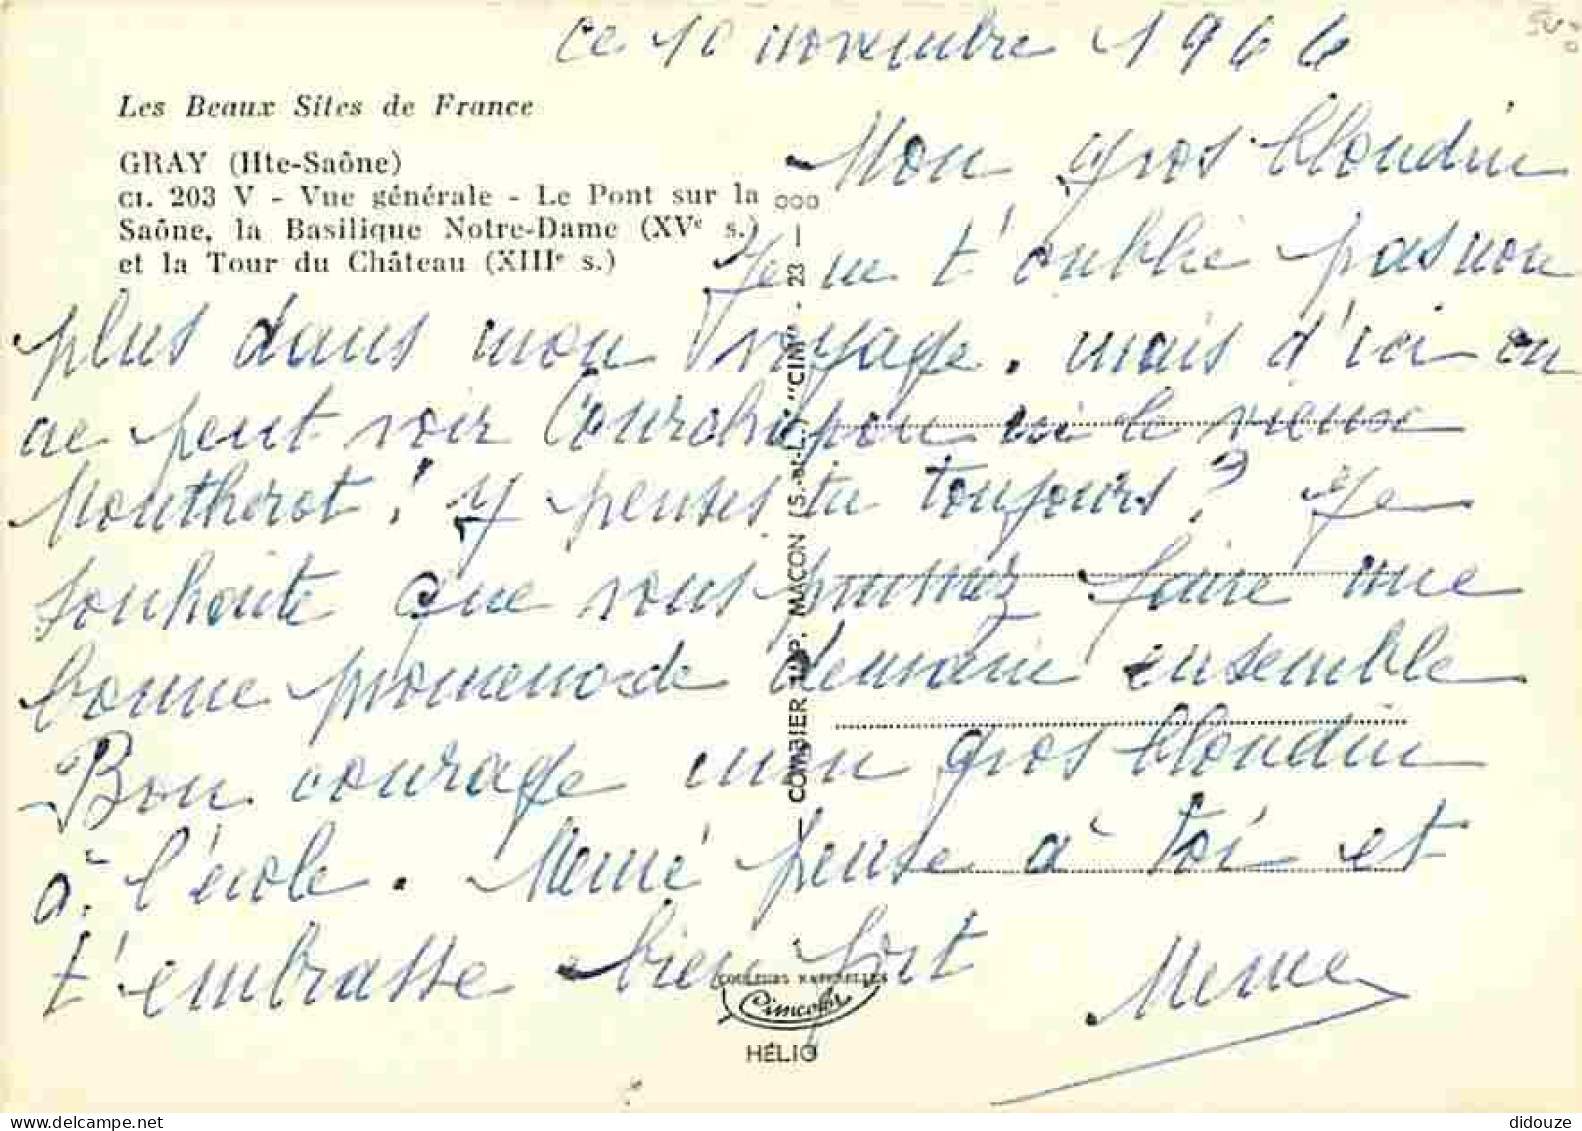 ce 10 novembre 1966
Les Beaux Sites de France
GRAY (Hte-Saône)
CI. 203 V - Vue générale - Le Pont sur la
Saône, la Basilique Notre-Dame (XVe s.)
et la Tour du Château (XIIIe s.)
Mon gros blondin
Je ne t'oublie pas non
plus dans mon voyage. mais d'ici on
ne peut voir Courchapon ni le vieux
Montherot! Y penses tu toujours? Je
souhaite que vous puissiez faire une
bonne promenade demain ensemble
Bon courage mon gros blondin
à l'école. Mémé pense à toi et
t'embrasse bien fort
Meme
COMBIER IMP. MACON (S.-et-L.) "CIM" - 23 -
COULEURS NATURELLES
Cimcolor
HÉLIO
www.delcampe.net
didouze